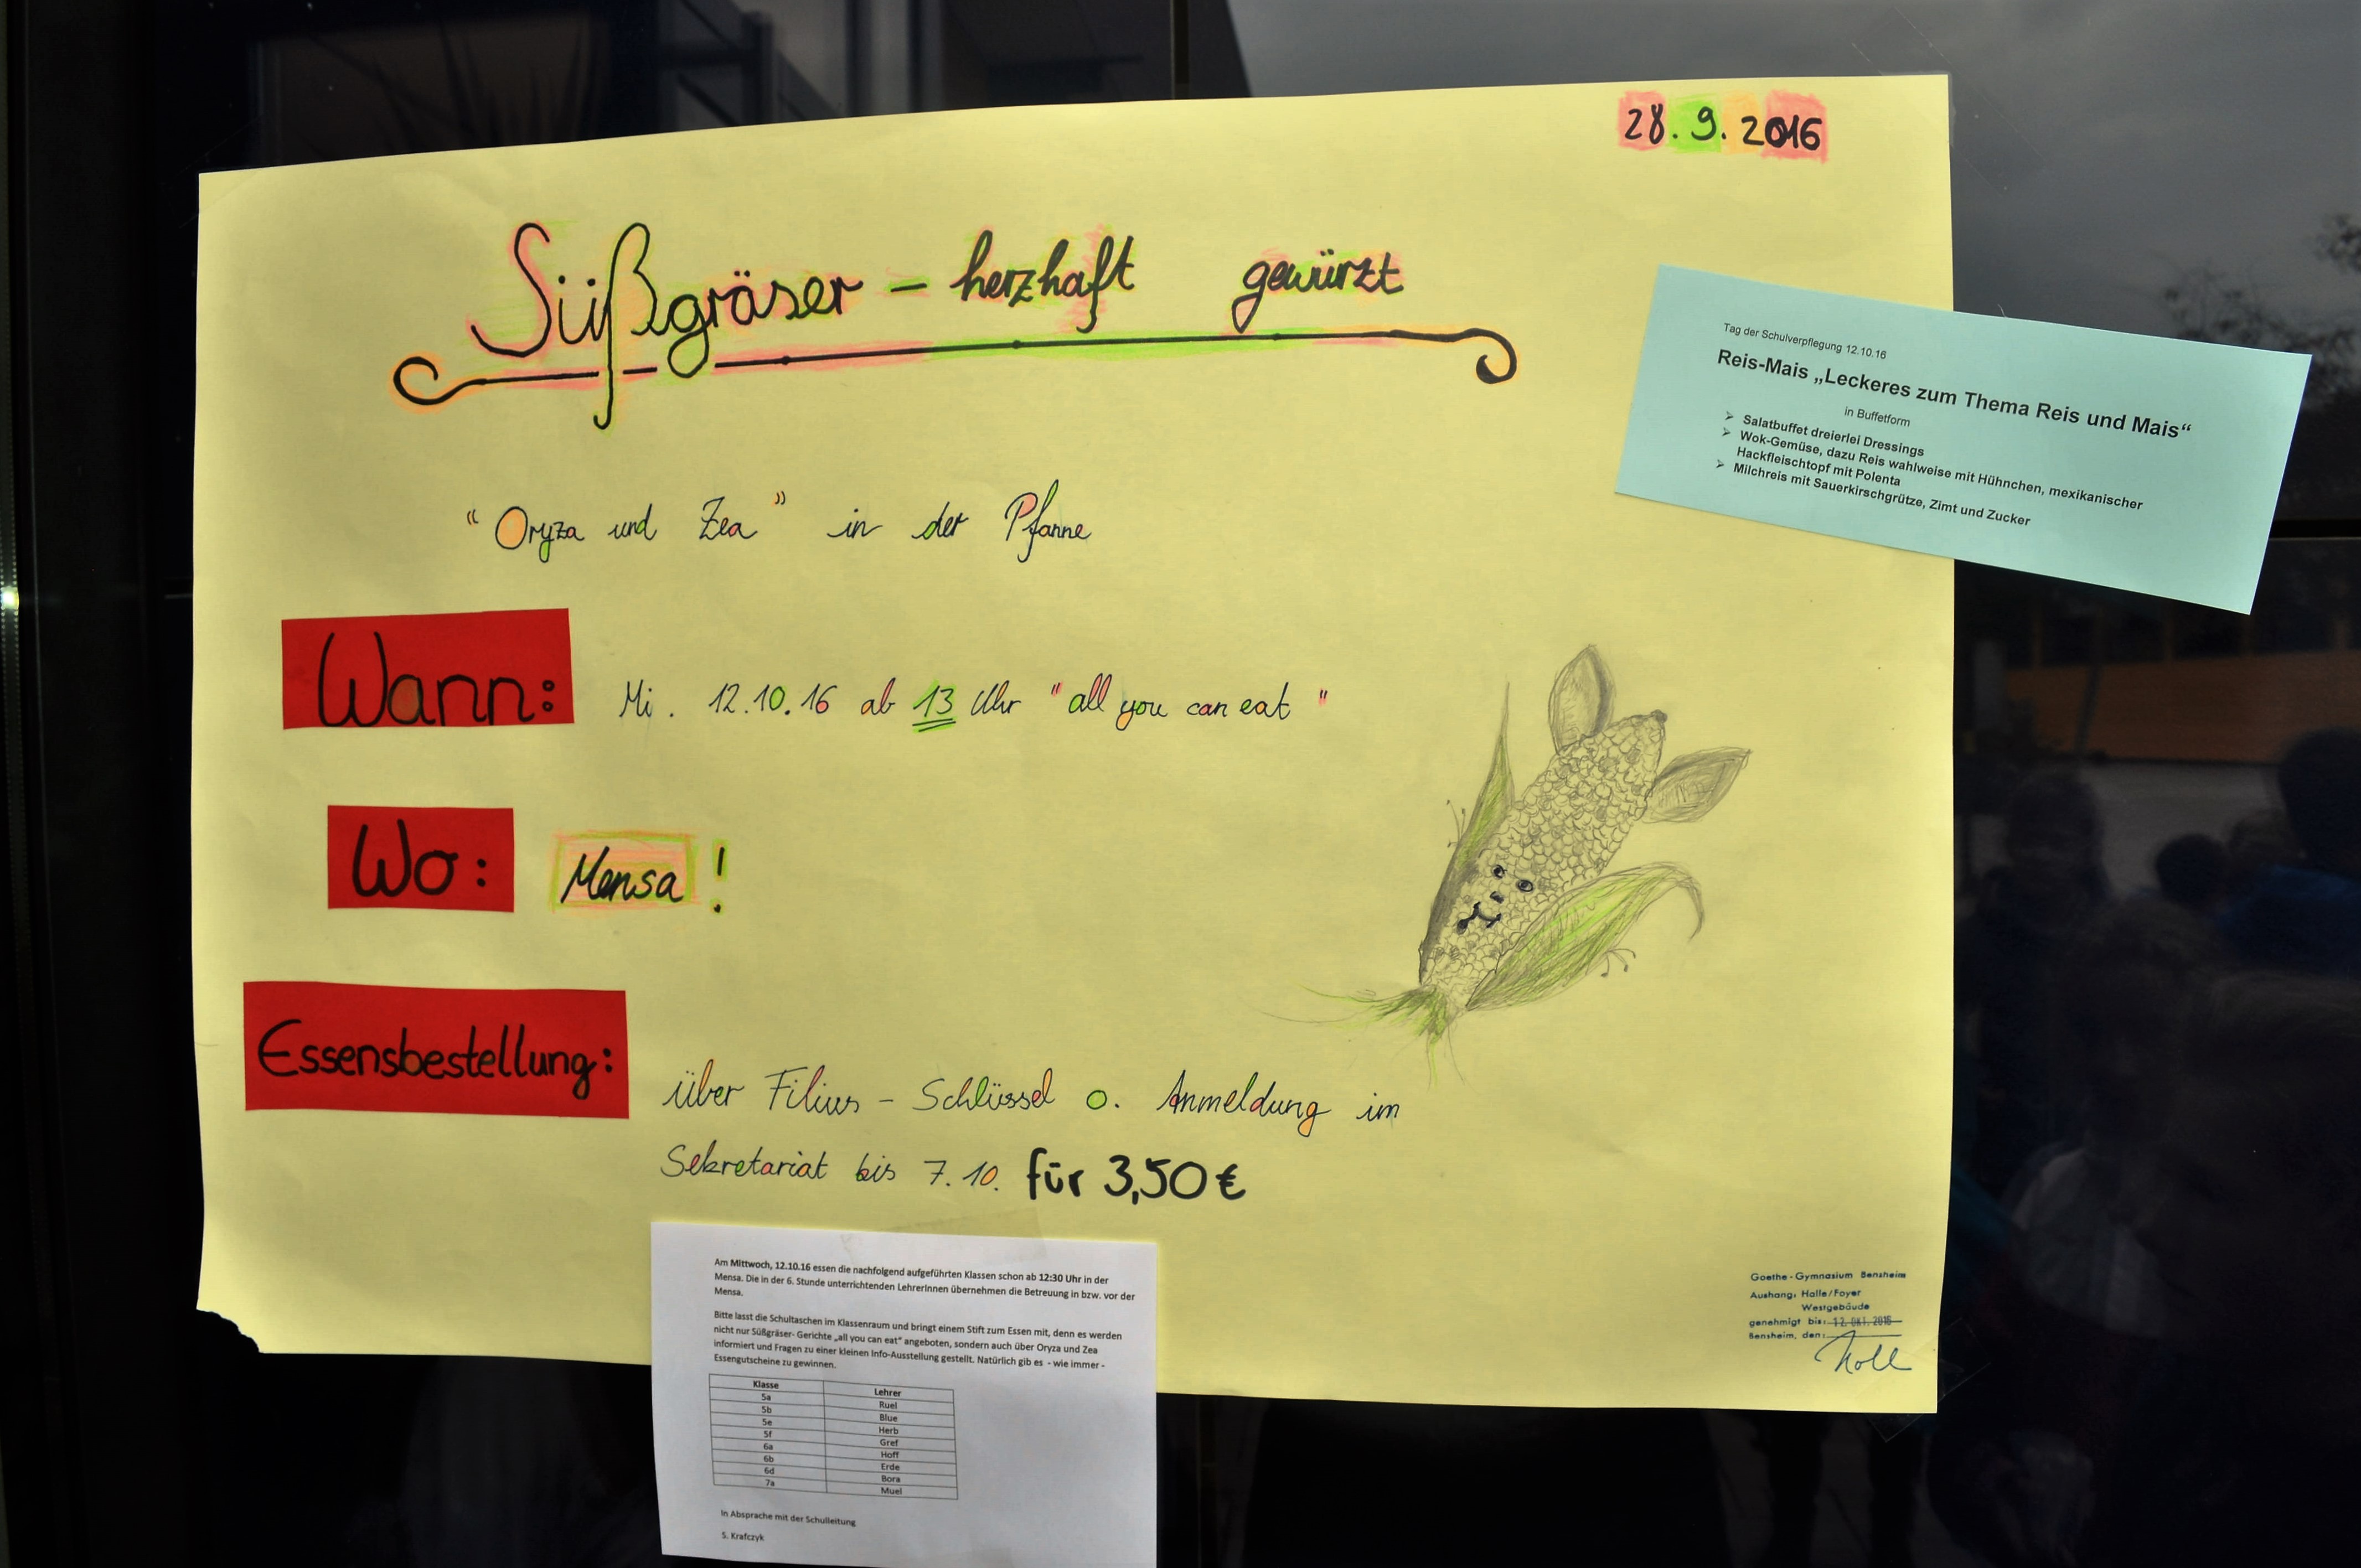 28.9.2016
Süßgräser - herzhaft gewürzt
"Oryza und Zea" in der Pfanne
Wann: Mi. 12.10.16 ab 13 Uhr "all you can eat"
Wo: Mensa!
Essensbestellung: über Filius - Schlüssel o. Anmeldung im
Sekretariat bis 7.10. für 3,50€
Tag der Schulverpflegung 12.10.16
Reis-Mais „Leckeres zum Thema Reis und Mais“
in Buffetform
➢ Salatbuffet dreierlei Dressings
➢ Wok-Gemüse, dazu Reis wahlweise mit Hühnchen, mexikanischer
Hackfleischtopf mit Polenta
➢ Milchreis mit Sauerkirschgrütze, Zimt und Zucker
Am Mittwoch, 12.10.16 essen die nachfolgend aufgeführten Klassen schon ab 12:30 Uhr in der
Mensa. Die in der 6. Stunde unterrichtenden LehrerInnen übernehmen die Betreuung in bzw. vor der
Mensa.
Bitte lasst die Schultaschen im Klassenraum und bringt einem Stift zum Essen mit, denn es werden
nicht nur Süßgräser- Gerichte „all you can eat“ angeboten, sondern auch über Oryza und Zea
informiert und Fragen zu einer kleinen Info-Ausstellung gestellt. Natürlich gib es - wie immer -
Essengutscheine zu gewinnen.
Klasse Lehrer
5a Ruel
5b Blue
5e Herb
5f Gref
6a Hoff
6b Erde
6d Bora
7a Muel
In Absprache mit der Schulleitung
S. Krafczyk
Goethe-Gymnasium Bensheim
Aushang: Halle/Foyer
Westgebäude
genehmigt bis: 12. OKT. 2016
Bensheim, den: